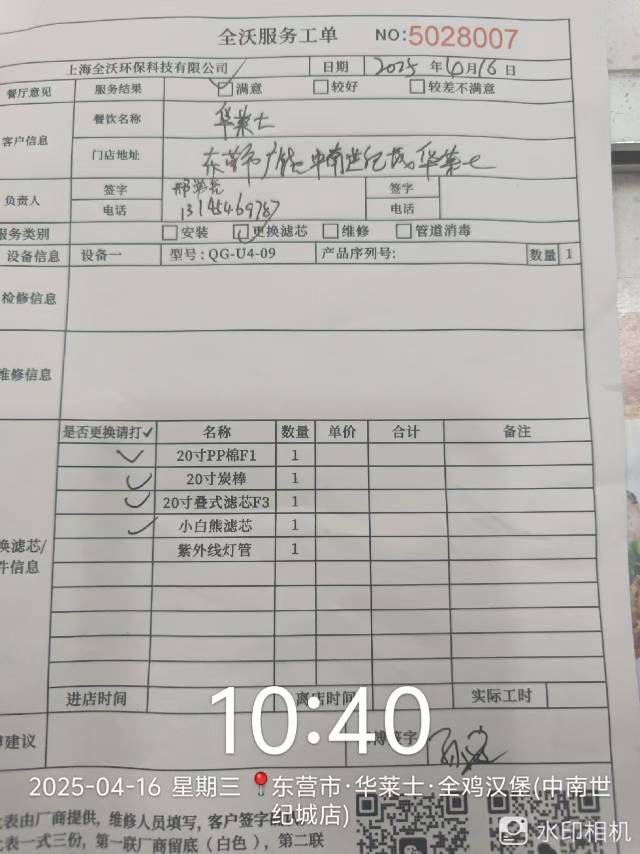 全沃服务工单 NO:5028007
上海全沃环保科技有限公司 日期 2025 年 4 月 16 日
餐厅意见 服务结果 ✓满意 □较好 □较差不满意
客户信息 餐饮名称 华莱士
门店地址 东营市 中南世纪城 华莱士
负责人 签字 签字
电话 电话
服务类别 □安装 ✓更换滤芯 □维修 □管道消毒
设备信息 设备一 型号:QG-U4-09 产品序列号: 数量 1
检修信息
维修信息
是否更换请打✓ 名称 数量 单价 合计 备注
✓ 20寸PP棉F1 1
✓ 20寸炭棒 1
✓ 20寸叠式滤芯F3 1
✓ 小白熊滤芯 1
紫外线灯管 1
换滤芯/
件信息
进店时间 离店时间 实际工时
建议 签字
10:40
2025-04-16 星期三 东营市·华莱士·全鸡汉堡(中南世
纪城店)
表由厂商提供，维修人员填写，客户签字
表一式三份，第一联厂商留底（白色），第二联
水印相机